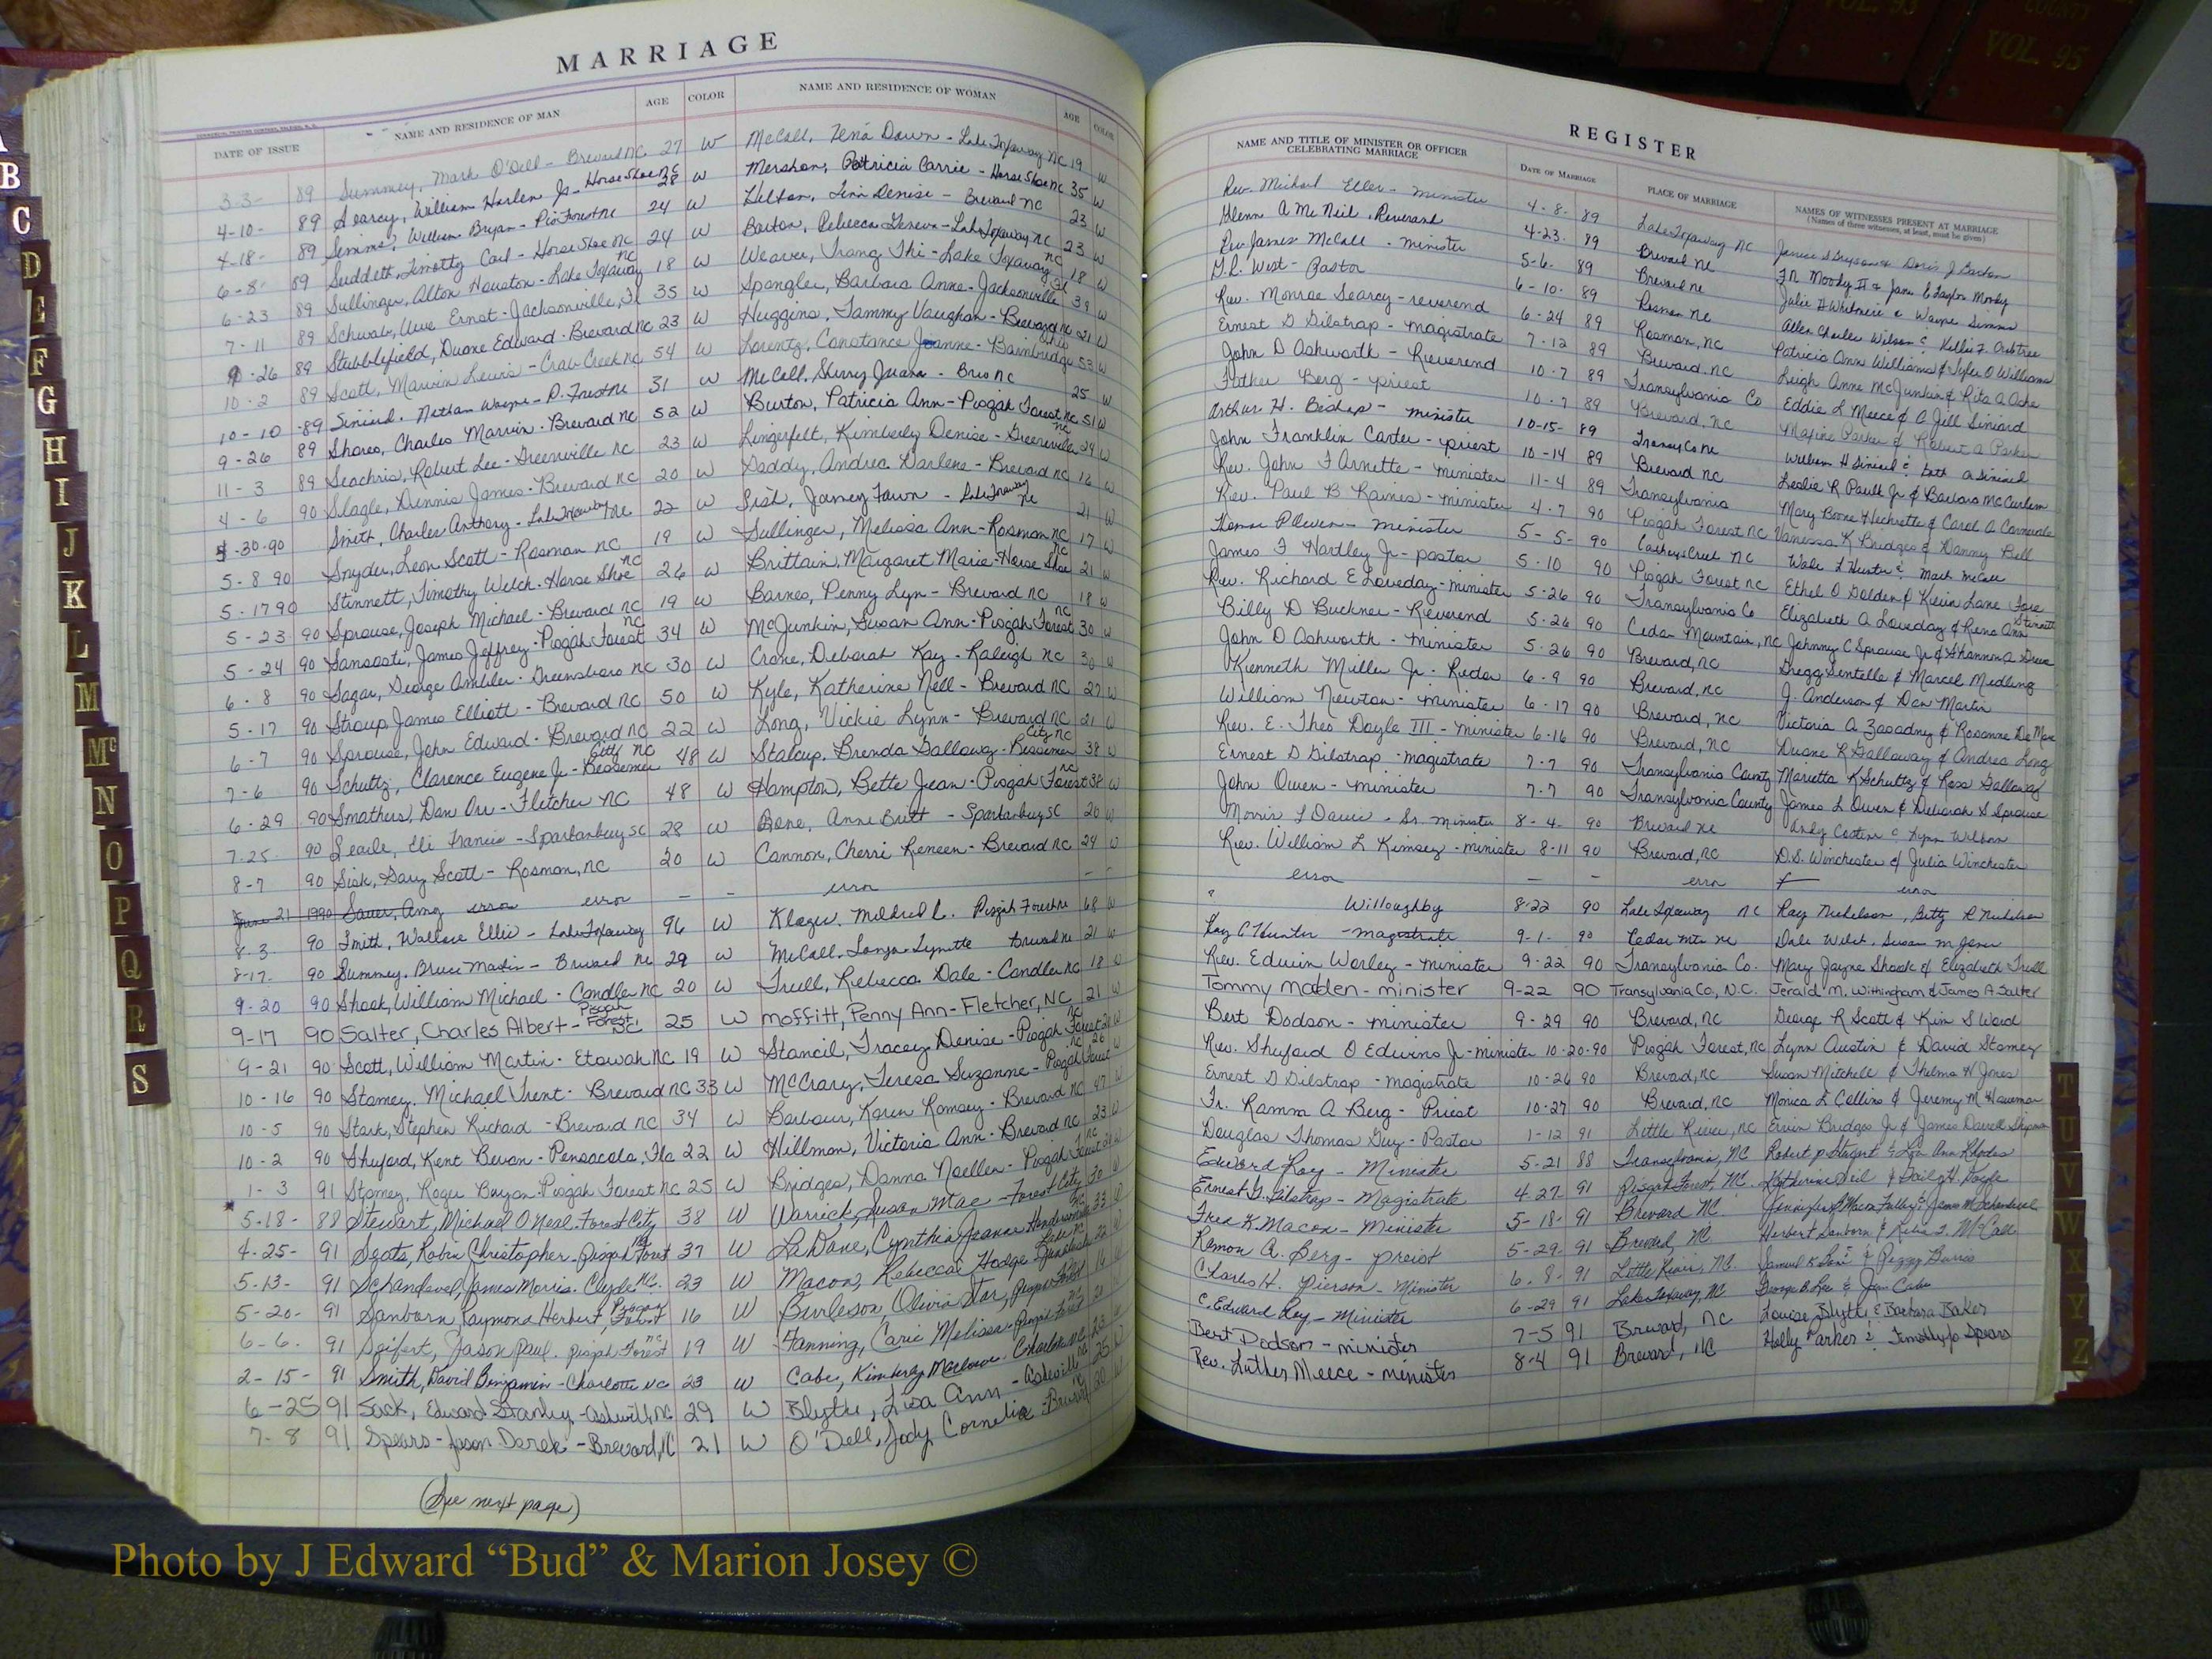 MARRIAGE
DATE OF ISSUE NAME AND RESIDENCE OF MAN AGE COLOR NAME AND RESIDENCE OF WOMAN AGE COLOR
3-3- 89 Summey, Mark O'Dell - Brevard NC 27 W McCall, Tena Dawn - Lake Toxaway NC 19 W
4-10- 89 Searcy, William Harlen Jr - Horse Shoe NC 28 W Mershon, Patricia Carrie - Horse Shoe NC 35 W
4-18- 89 Simms, William Bryan - Pis Forest NC 24 W Helton, Denise - Brevard NC 23 W
6-8- 89 Suddeth, Timothy Carl - Horse Shoe NC 24 W Barton, Rebecca Geneva - Lake Toxaway NC 23 W
6-23 89 Sullinger, Alton Houston - Lake Toxaway NC 18 W Weaver, Trang Thi - Lake Toxaway NC 18 W
7-11 89 Schwab, Uwe Ernst - Jacksonville, Fl 35 W Spangler, Barbara Anne - Jacksonville Fl 39 W
9-26 89 Stubblefield, Duane Edward - Brevard NC 23 W Huggins, Tammy Vaughan - Brevard NC 21 W
10-2 89 Scott, Marvin Lewis - Crab Creek NC 54 W Lorentz, Constance Jeanne - Bainbridge Ohio 53 W
10-10 -89 Siniard, Nathan Wayne - P. Forest NC 31 W McCall, Sherry Juana - Brev NC 25 W
9-26 89 Shores, Charles Marvin - Brevard NC 52 W Burton, Patricia Ann - Pisgah Forest NC 51 W
11-3 89 Seachris, Robert Lee - Greenville NC 23 W Lingerfelt, Kimberly Denise - Greenville NC 24 W
4-6 90 Slagle, Dennis James - Brevard NC 20 W Gaddy, Andrea Darlene - Brevard NC 16 W
-30-90 Smith, Charles Anthony - Lake Toxaway NC 22 W Sisk, Jamey Fawn - Lake Toxaway NC 21 W
5-8 90 Snyder, Leon Scott - Rosman NC 19 W Sullinger, Melissa Ann - Rosman NC 17 W
5-17 90 Stinnett, Timothy Welch - Horse Shoe NC 26 W Brittain, Margaret Marie - Horse Shoe NC 21 W
5-23 90 Sprouse, Joseph Michael - Brevard NC 19 W Barnes, Penny Lyn - Brevard NC 18 W
5-24 90 Sansosti, James Jeffrey - Pisgah Forest NC 34 W McJunkin, Susan Ann - Pisgah Forest NC 30 W
6-8 90 Sagar, George Ambler - Greensboro NC 30 W Crane, Deborah Kay - Raleigh NC 30 W
5-17 90 Stroup, James Elliott - Brevard NC 50 W Kyle, Katherine Nell - Brevard NC 27 W
6-7 90 Sprouse, John Edward - Brevard NC 22 W Long, Vickie Lynn - Brevard NC 21 W
7-6 90 Schultz, Clarence Eugene Jr - Bessemer City NC 48 W Stalcup, Brenda Galloway - Bessemer City NC 38 W
6-29 90 Smathers, Dan Orr - Fletcher NC 48 W Hampton, Bette Jean - Pisgah Forest NC 38 W
7-25- 90 Searle, Eli Francis - Spartanburg SC 28 W Anne Britt - Spartanburg SC 20 W
8-7 90 Sisk, Gary Scott - Rosman, NC 20 W Cannon, Cherri Reneen - Brevard NC 24 W
June 21 1990 Sauer, Amy error error - - error - -
8-3 90 Smith, Wallace Ellis - Lake Toxaway 96 W Mildred L. Pisgah Forest NC 68 W
8-17- 90 Summey, Bruce Martin - Brevard NC 29 W McCall, Tonya Lynette Brevard NC 21 W
9-20 90 Shook, William Michael - Candler NC 20 W Trull, Rebecca Dale - Candler NC 18 W
9-17 90 Salter, Charles Albert - Pisgah Forest NC 25 W Moffitt, Penny Ann - Fletcher, NC 21 W
9-21 90 Scott, William Martin - Etowah NC 19 W Stancil, Tracey Denise - Pisgah Forest NC
10-16 90 Stamey, Michael Trent - Brevard NC 33 W McCrary, Teresa Suzanne - Pisgah Forest NC 26
10-5 90 Stark, Stephen Richard - Brevard NC 34 W Barbour, Karen Ramsey - Brevard NC 47 W
10-2 90 Shuford, Kent Bevan - Pensacola, Fla 22 W Hillman, Victoria Ann - Brevard NC 23 W
1-3 91 Stamey, Roger Bryan - Pisgah Forest NC 25 W Bridges, Danna Noellen - Pisgah Forest NC
5-18- 88 Stewart, Michael O'Neal - Forest City 38 W Warrick, Susan Mae - Forest City NC 30
4-25- 91 Robin Christopher - Pisgah Forest NC 37 W LaDane, Cynthia Jeanne Hendersonville 33
5-13- 91 Schandevel, James Morris - Clyde NC. 23 W Macon, Rebecca Hodge - 22
5-20- 91 Sanborn, Raymond Herbert, Pisgah Forest 16 W Burleson, Olivia Star, Pisgah Forest
6-6- 91 Seifert, Jason Paul - Pisgah Forest NC 19 W Fanning, Carie Melissa - Pisgah Forest NC
2-15- 91 Smith, David Benjamin - Charlotte NC 23 W Cabe, Kimberly Marlowe - Charlotte NC 23
6-25 91 Suck, Edward Stanley - Asheville, NC 29 W Blythe, Lisa Ann - Asheville NC 25
7-8 91 Spears - Jason Derek - Brevard, NC 21 W O'Dell, Jody Cornelia - Brevard NC 20
(See next page)
REGISTER
NAME AND TITLE OF MINISTER OR OFFICER CELEBRATING MARRIAGE DATE OF MARRIAGE PLACE OF MARRIAGE NAMES OF WITNESSES PRESENT AT MARRIAGE
(Names of three witnesses, at least, must be given)
Rev. Michael Eller - minister 4-8- 89 Lake Toxaway NC Janice S Bryson & Doris J Barton
Glenn A McNeil, Reverend 4-23- 89 Brevard NC F.N. Moody II & Jane E Taylor Moody
Rev James McCall - minister 5-6- 89 Brevard NC Julie H Whitmire & Wayne Simms
G.R. West - Pastor 6-10- 89 Rosman NC Allen Charles Wilson & Kellie F. Crabtree
Rev. Monroe Searcy - reverend 6-24 89 Rosman, NC Patricia Ann Williams & Tyler O Williams
Ernest D Gilstrap - magistrate 7-12 89 Brevard, NC Leigh Anne McJunkin & Rita A Ashe
John D Ashworth - Reverend 10-7 89 Transylvania Co Eddie L Meece & A Jill Siniard
Father Berg - priest 10-7 89 Brevard, NC Maxine Parker & Robert A Parker
Arthur H. Bishop - minister 10-15- 89 Transy Co NC William H Siniard &
John Franklin Carter - priest 10-14 89 Brevard NC Leslie R Pault Jr & Barbara McCurlem
Rev. John F Arnette - minister 11-4 89 Transylvania Mary Boone
Rev. Paul B Raines - minister 4-7 90 Pisgah Forest NC Vanessa K Bridges & Danny Bell
Thomas P Owen - minister 5-5- 90 Catheys Creek NC & Mark McCall
James F Hartley Jr - pastor 5-10 90 Pisgah Forest NC Ethel O Golden & Kevin Lane Fore
Rev. Richard E Loveday - minister 5-26 90 Transylvania Co Elizabeth A Loveday & Rena Ann Stinnett
Billy D Buckner - Reverend 5-26 90 Cedar Mountain, NC Johnny C Sprouse Jr & Shannon A
John D Ashworth - minister 5-26 90 Brevard, NC Gregg Sentelle & Marcel Medling
Kenneth Miller Jr. 6-9 90 Brevard, NC J. Anderson & Dan Martin
William Newton - minister 6-17 90 Brevard, NC Victoria A Zaoadny & Rosanne De Marc
Rev. E. Theo Doyle III - minister 6-16 90 Brevard, NC Duane R Galloway & Andrea Long
Ernest D Gilstrap - magistrate 7-7 90 Transylvania County Marietta K Schultz & Ross Galloway
John Owen - minister 7-7 90 Transylvania County James L Owen & Deborah S Sprouse
Morris L Davis - Sr. minister 8-4- 90 Brevard NC Andy & Lynn Wilbon
Rev. William L Kimsey - minister 8-11 90 Brevard, NC D.S. Winchester & Julia Winchester
error - - error error
Willoughby 8-22 90 Lake Toxaway NC Ray Nicholson, Betty R Nicholson
Ray C Hunter - magistrate 9-1- 90 Cedar Mtn NC Dale Welch, Susan M Jones
Rev. Edwin Worley - minister 9-22 90 Transylvania Co. Mary Jayne Shook & Elizabeth Trull
Tommy Maden - minister 9-22 90 Transylvania Co, N.C. Jerald M. Withingham & James A Salter
Bert Dodson - minister 9-29 90 Brevard, NC George R Scott & Kim S Ward
Rev. Shuford O Edwins Jr - minister 10-20-90 Pisgah Forest, NC Lynn Austin & David Stamey
Ernest D Gilstrap - magistrate 10-26 90 Brevard, NC Susan Mitchell & Thelma W Jones
Fr. Ramon A Berg - Priest 10-27 90 Brevard, NC Monica L Collins & Jeremy M
Douglas Thomas Guy - Pastor 1-12 91 Little River, NC Ervin Bridges Jr & James Darrell
Edward Roy - Minister 5-21 88 Transylvania, NC Robert P Stewart & Lisa Ann Rhodes
Ernest D. Gilstrap - Magistrate 4-27- 91 Pisgah Forest, NC. Katherine Seil & Gail H.
Fred K. Macon - Minister 5-18- 91 Brevard NC.
Ramon A. Berg - preist 5-29- 91 Brevard, NC. Herbert Sanborn & McCall
Charles H. Pierson - Minister 6-8- 91 Little River, NC. Samuel K. & Peggy
C. Edward Roy - Minister 6-29 91 Lake Toxaway, NC George B. & Jean Cabe
Bert Dodson - minister 7-5 91 Brevard, NC Louise Blythe & Barbara Baker
Rev. Luther Meece - minister 8-4 91 Brevard, NC Holly Parker & Timothy Jo Spears
B
C
D
E
F
G
H
I
J
K
L
M
Mc
N
O
P
Q
R
S
T
U
V
W
X
Y
Z
VOL. 93
COUNTY
VOL. 95
Photo by J Edward “Bud” & Marion Josey ©